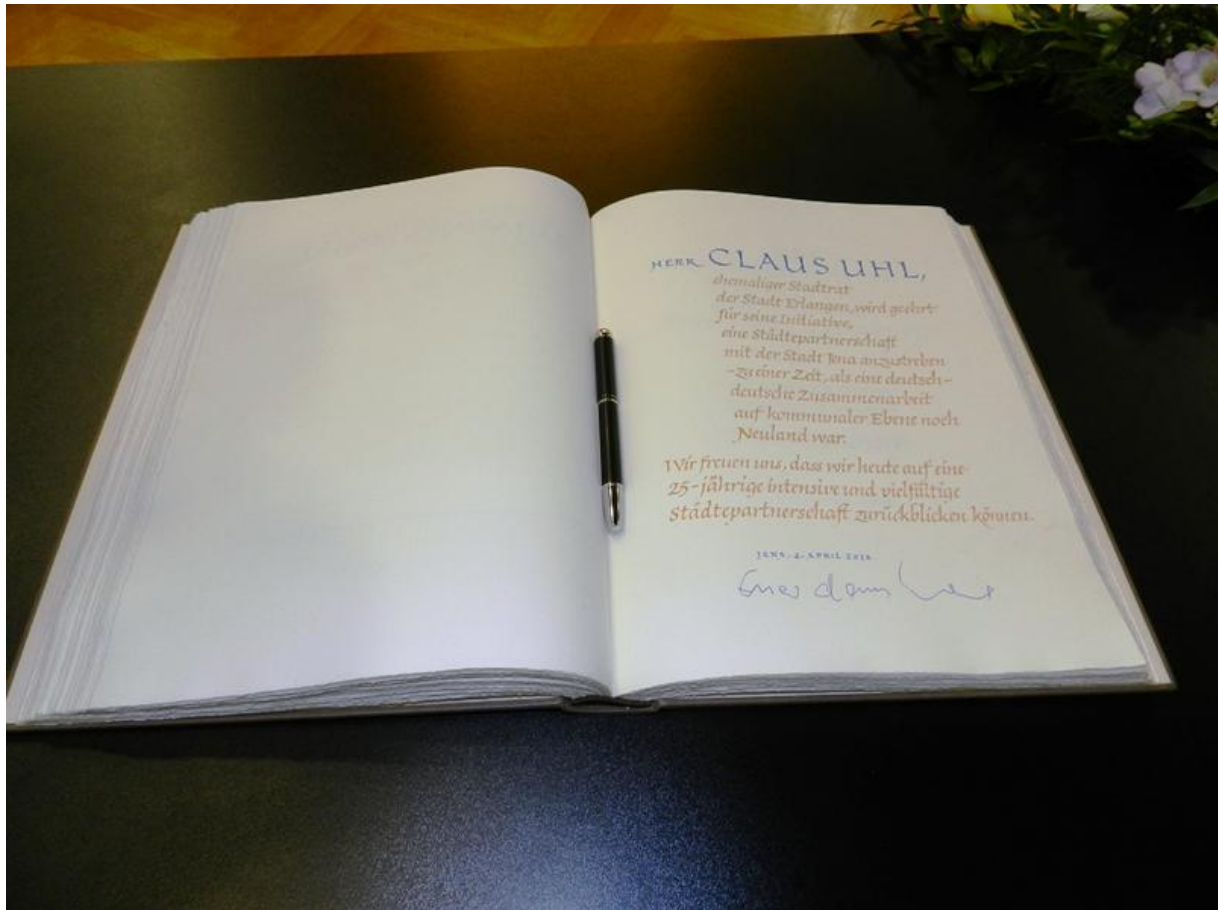 HERR CLAUS UHL,
ehemaliger Stadtrat
der Stadt Erlangen, wird geehrt
für seine Initiative,
eine Städtepartnerschaft
mit der Stadt Jena anzustreben
-zu einer Zeit, als eine deutsch-
deutsche Zusammenarbeit
auf kommunaler Ebene noch
Neuland war.
Wir freuen uns, dass wir heute auf eine
25-jährige intensive und vielfältige
Städtepartnerschaft zurückblicken können.
JENA, APRIL